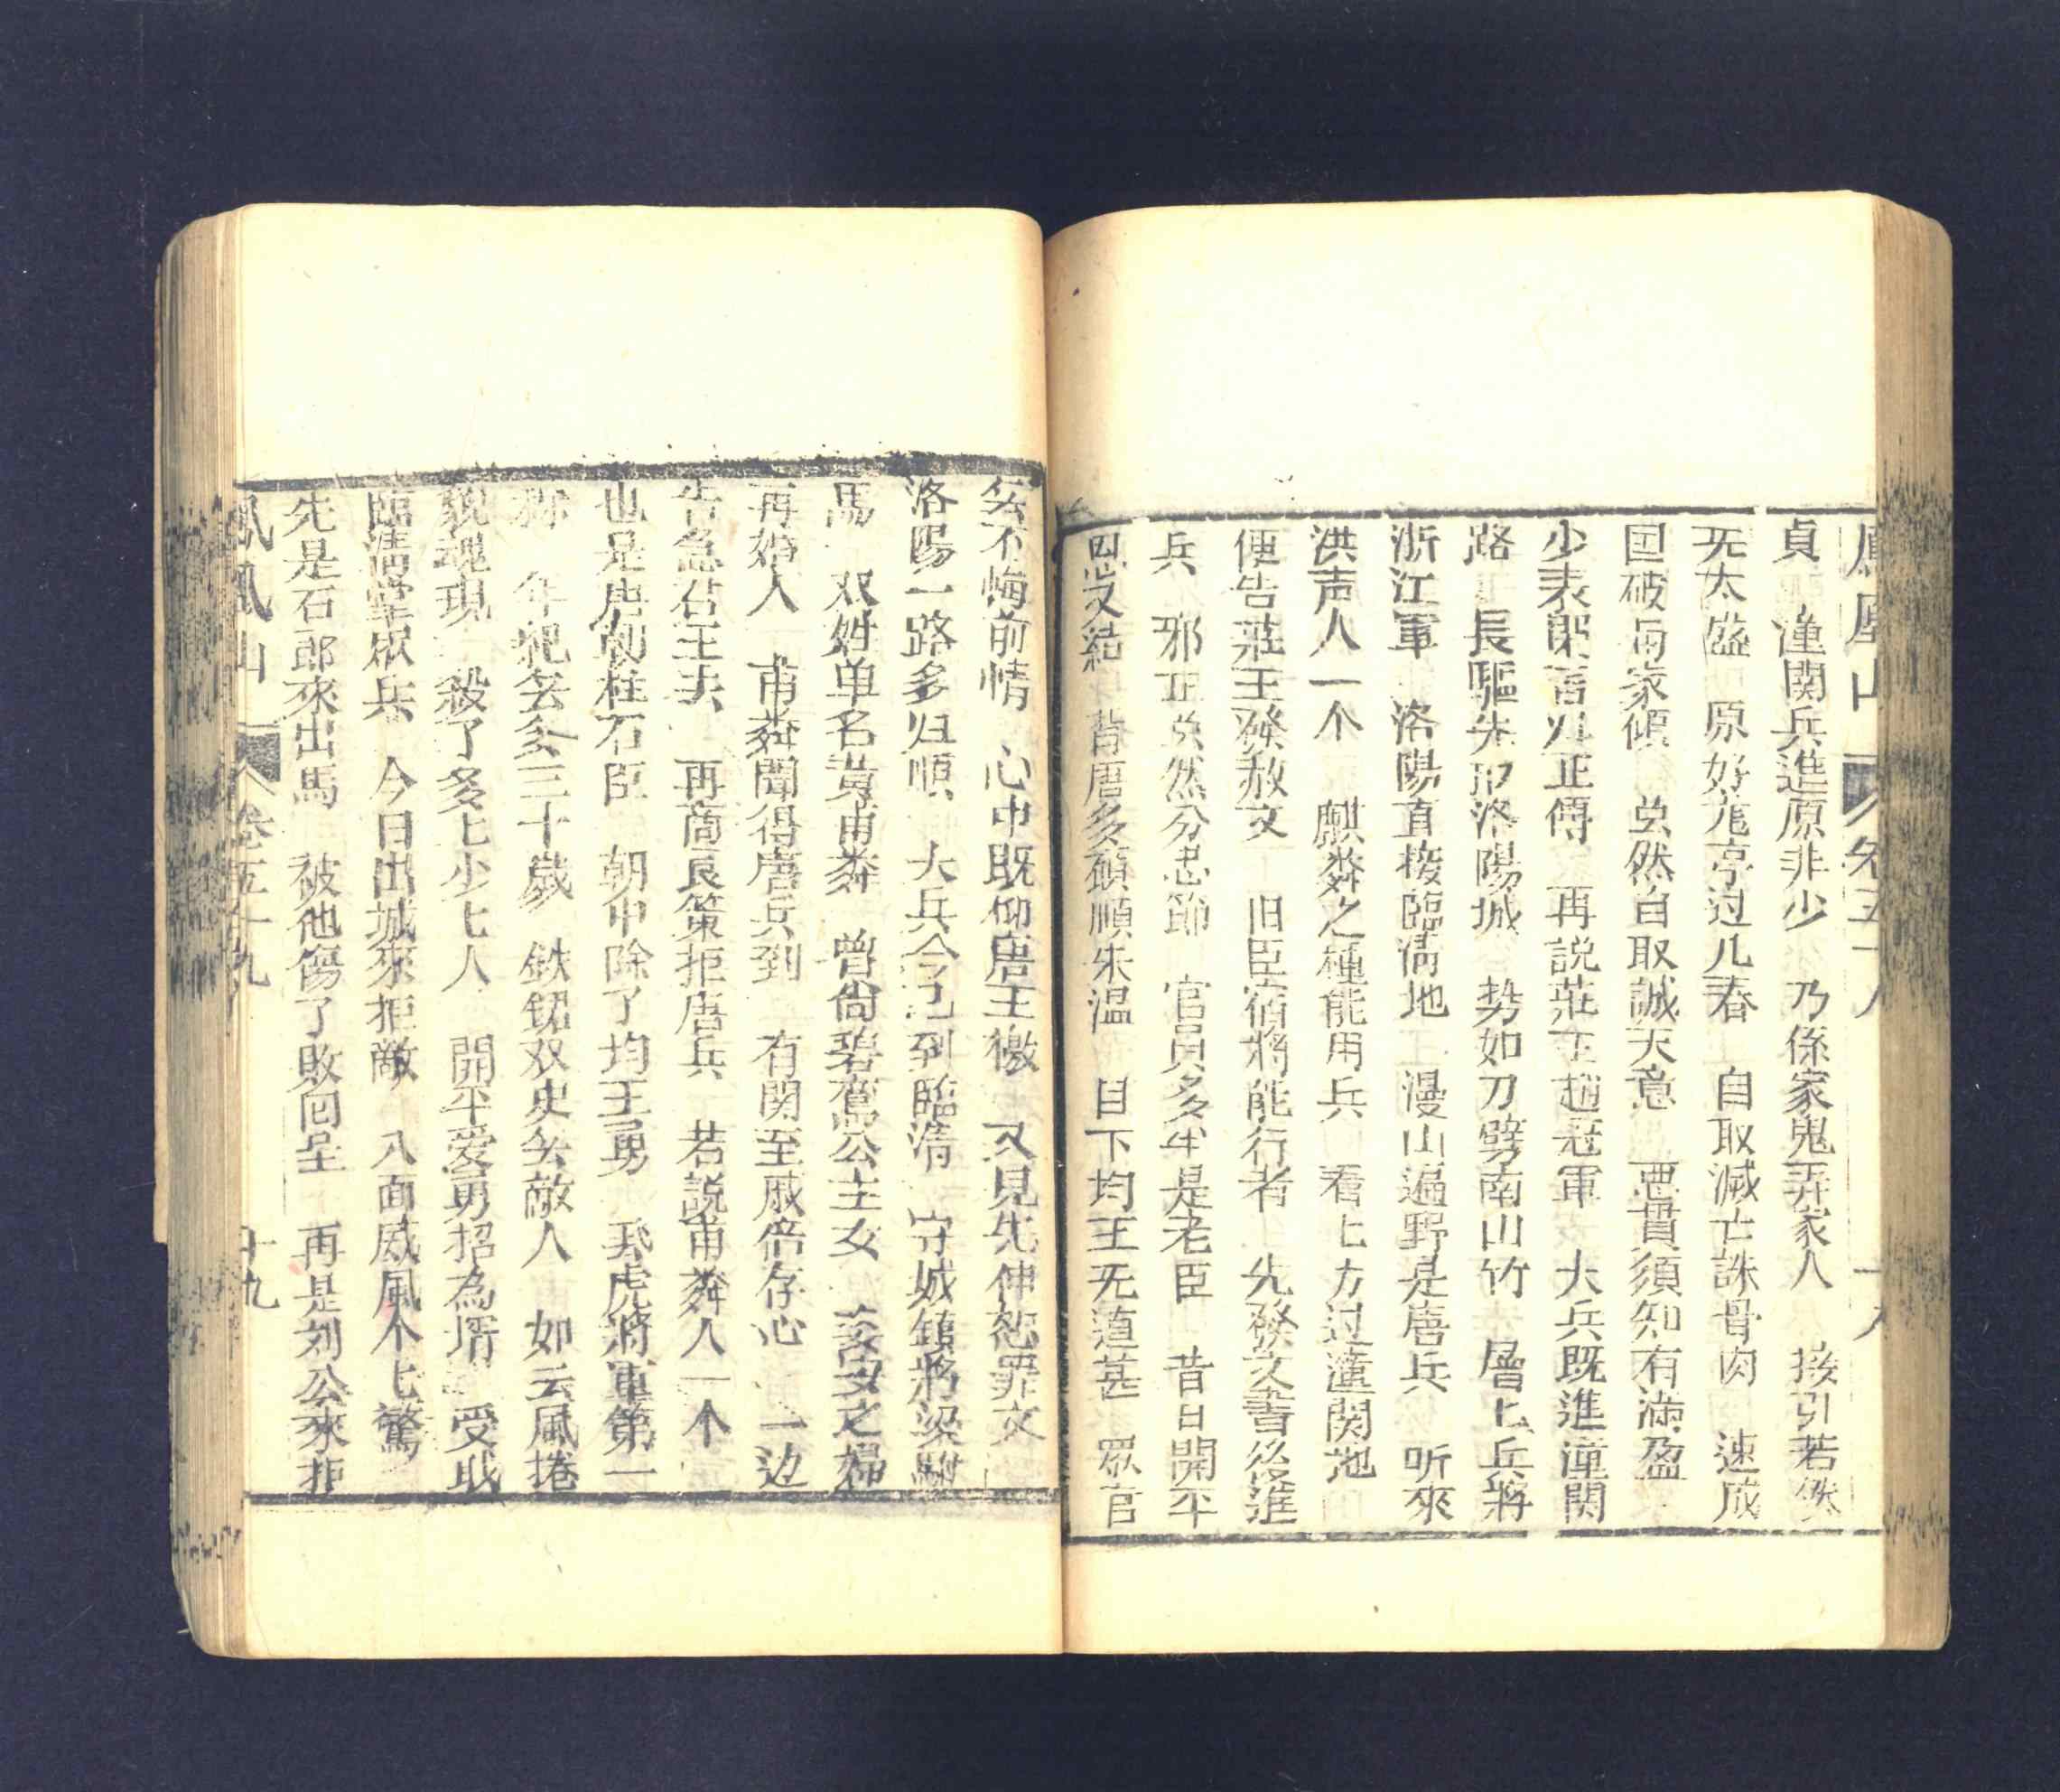 鳳凰山 卷五十八 十八
貞 潼関兵進原非少 乃係家鬼弄家人 接引若
旡太盛 原好 亭过几春 自取滅亡誅骨肉 速成
囯破与家傾 㒷然自取誠天意 悪貫須知有満盈
少表 言归正傳 再説莊王趙冠軍 大兵既進潼関
路 長驅先取洛陽城 势如刀劈南山竹 層匕兵将
浙江軍 洛陽直接臨清地 漫山遍野是唐兵 听來
洪声人一个 麒麟之種能用兵 看匕方过潼関地
便告莊王發赦文 旧臣宿将能行者 先發文書後進
兵 邪正㒷然分忠節 官員多半是老臣 昔日開平
恩义結 背唐多願順朱温 目下均王旡道甚 眾官
矣不悔前情 心中既仰唐王檄 又見先伸赦罪文
洛陽一路多归順 大兵今已到臨清 守城鎮將梁駙
馬 双姓单名黄甫粦 曾尚碧鸞公主女 之婦
再婚人 甫粦聞得唐兵到 有関至戚倍存心 一边
告急君王去 再商良策拒唐兵 若説甫粦人一个
也是唐朝柱石臣 朝中除了均王勇 飛虎将軍第一
称 年紀 三十歲 鉄 双 敵人 如云風捲
現 殺了多匕少匕人 開平爱勇招為壻 受职
臨清掌眾兵 今日出城來拒敵 八面威風个匕驚
先是石郎來出馬 被他傷了敗回呈 再是刘公來拒
鳳凰山 卷五十九 十九